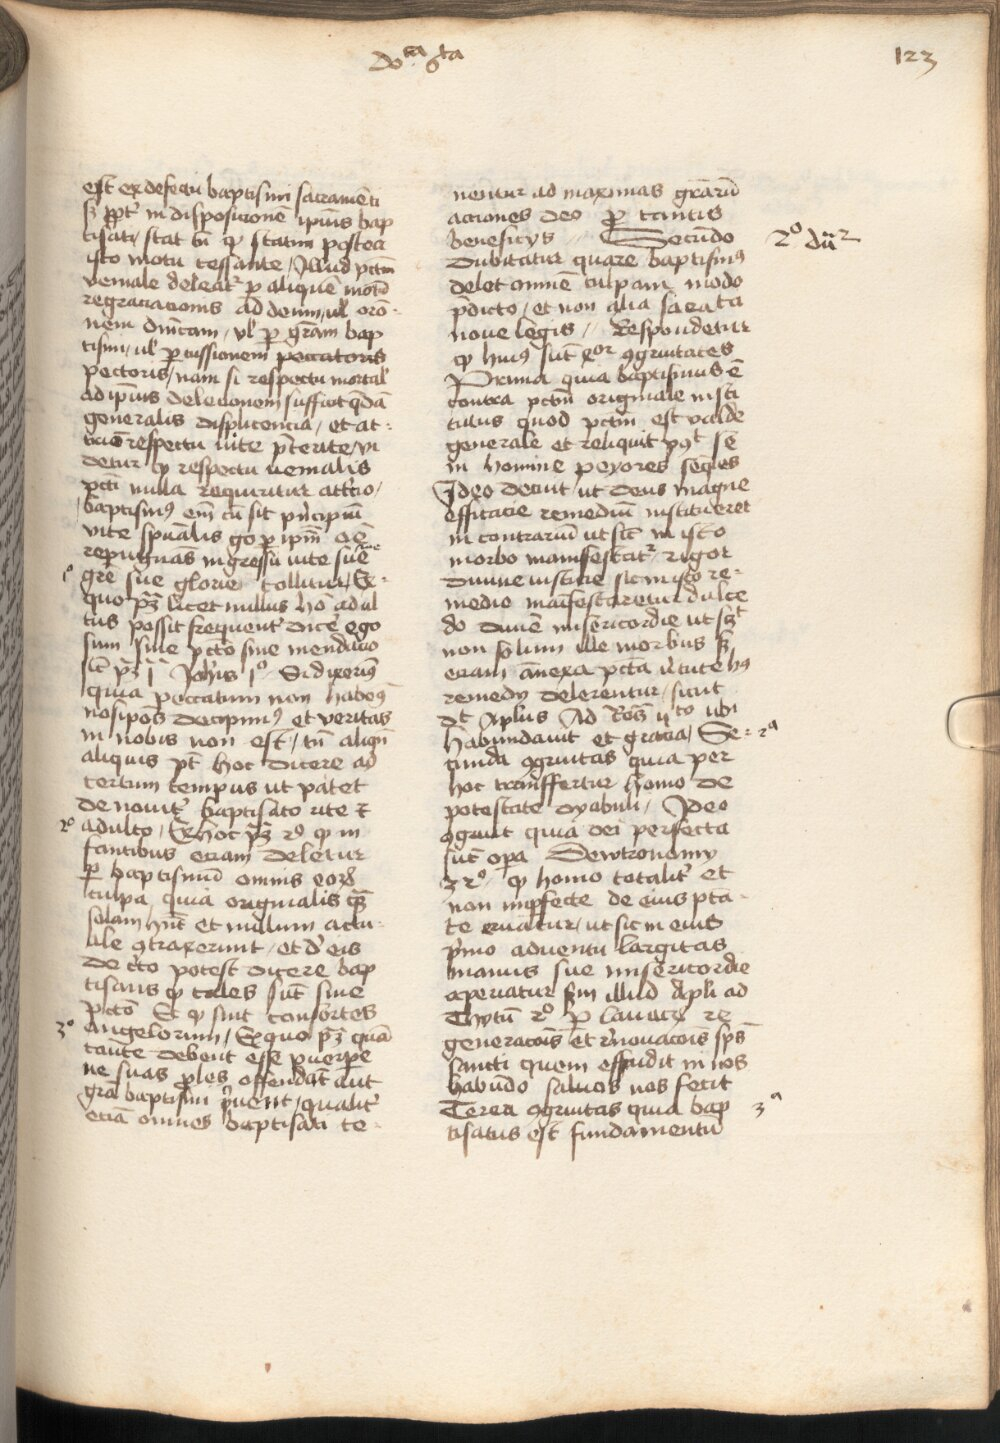 do^ca 6^ta
123
est ex defectu baptismi sacramēti
sʒ ꝓpt̄ indisposicionē ipius bap
tisati, stat tn̄ ꝙ statim postea
isto motu cessante, Illud pctm̄
veniale deleat᷑ ꝑ aliquē motū
regraciacionis ad deum, ul̓ oro-
nem dn̄icam, vl̓ ꝑ gram̄ bap
tismi, ul̓ percussionem peccatoris
pectoris, nam si respectu mortal̓
ad ipius delecionem sufficit qdā
generalis displicencia, et at-
tricō respectu vite p̄terite, vi
detur ꝙ respectu venialis
pcti nulla requiritur attr̄cio,
baptismꝰ em̄ cū sit p̄ncipiū
vite spūalis gͦ ꝑ ipm̄ oē
repugnās ingressū vite
gre sue glorie tollitur, Ex
1ͦ
quo pʒ licet nullus hō adul
tus possit frequent᷑ dicē ego
sum sine pctō sine mendacio
sic̄ pʒ ī Johis 1ͦ Si dixerimꝰ
quia peccatum non habemꝰ
nosipos decipimꝰ et veritas
in nobis non est, tn̄ aliqn̄
aliquis pt̄ hoc dicere ad
certum tempus ut patet
de noviter baptisato rite et
adulto, Ex hoc pʒ 2ͦ ꝙ in
2ͦ
fantibus eciam deletur
ꝑ baptismū omnis eoꝝ
culpa, quia originalis
solam hn̄t et nullum actu-
ale ꝯtraxerunt, et de eis
de c̄to potest dicere bap
tisans ꝙ tales sūt sine
pctō Et ꝙ sint consortes
angelorum, Ex quo pʒ quā
3ͦ
caute debent esse puerpe
ne suas proles offendāt aut
gra baptismi p̄vent, qualit᷑
eciā omnes baptisati te-
nentur ad maximas grarū
acciones deo ꝑ tantis
beneficiis // Secūdo
2ͦ du^r
dubitatur quare baptismꝰ
delet omnē culpam modo
p̄dicto, et non alia sacrata
nove legis // Respondetur
ꝙ huiꝰ sūt ꝯgruitates
Prima quia baptismus ē
contra pctm̄ originale insti
tutus quod pctm̄ est valde
generale et reliquit post se
in homine peyores
Ideo decuit ut deus magne
efficacie remediū institueret
in contrariū ut sic̄ in isto
morbo manifestat᷑ rigor
divine iusticie sic in isto re-
medio maīfestaretur dulce
do divīe misericordie ut
non solum ille morbus sʒ
eciam annexa pctā v̄tute hꝰ
remedii delerentur, sicut
dt̄ Aplus Ad Ros̄ v^to ubi
habundavit et gracia, Se-
2^a
cunda ꝯgruitas quia per
hoc transffertur homo de
potestate dyaboli, Ideo
ꝯgruit quia dei perfecta
sūt opa Dewtronomy
32ͦ ꝙ homo totalit᷑ et
non inpfecte de eius ptā-
te eruatur, ut sic in eius
p̄mo adventu largitas
manus sue misericordie
aperiatur scdm̄ illud Apli ad
Thytū 2ͦ ꝑ lavacꝝ re
generacōis et rēnovacōis sps̄
sancti quem effudit in nos
habūde salvos nos fecit
Tercia ꝯgruitas quia bap
3^a
tisatus est fundamentū